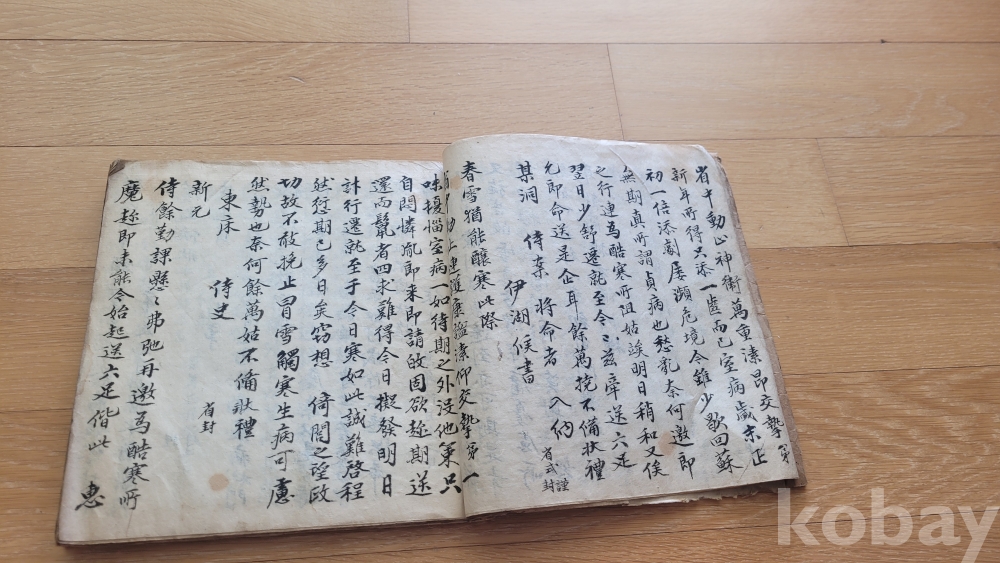 省中動止神衛萬重溸昂交摯第
新年所得只添一齒而已室病歲末正
初一倍添劇屢瀕危境今雖少歇回蘇
無期真所謂貞病也愁亂奈何邀即
之行連為酷寒所阻姑竢明日稍和又俟
翌日少舒遷就至今玆牽送六足
允即命送是企耳餘萬撓不備狀禮
某洞 侍案 將命者 入納
伊湖候書
省式謹封
春雪猶能釀寒此際
連護康謐溸仰交摯第一
味擾惱室病一如待期之外沒他藥只
自悶憐胤即來即請故固欲趁期送
還而鬣者四求難得今日擬發明日
計行遷就至于今日寒如此誠難啓程
然衍期已多日矣竊想 倚閭之望政
切故不敢挽止冒雪觸寒生病可慮
然勢也奈何餘萬姑不備狀禮
東床 侍史
省封
新元
侍餘勤課懸〻弟弛再邀為酷寒所
魔趁即未能今始起送六足偕此 惠
kobay